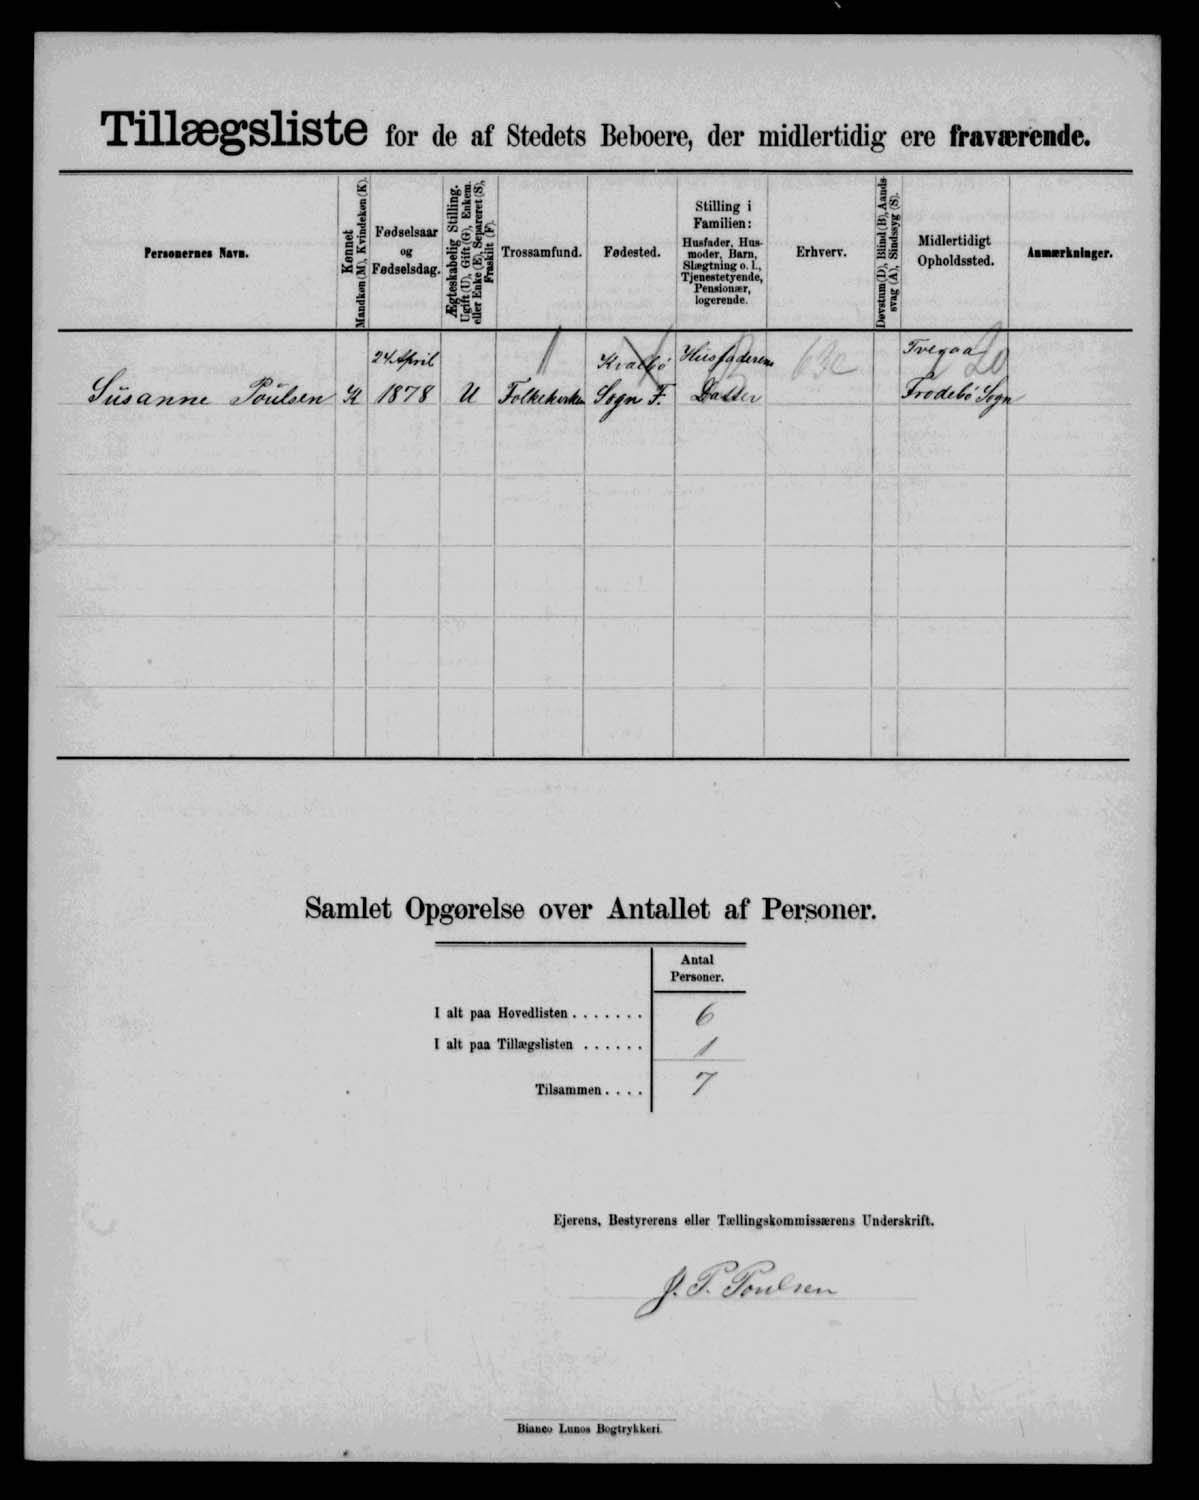 Tillægsliste for de af Stedets Beboere, der midlertidig ere fraværende.
Personernes Navn.
Kønnet
Mandkøn (M), Kvindekøn (K).
Fødselsaar
og
Fødselsdag.
Ægteskabelig Stilling.
Ugift (U), Gift (G), Enkem.
eller Enke (E), Separeret (S),
Fraskilt (F).
Trossamfund.
Fødested.
Stilling i
Familien:
Husfader, Hus-
moder, Barn,
Slægtning o. l.,
Tjenestetyende,
Pensionær,
logerende.
Erhverv.
Døvstum (D), Blind (B), Aands-
svag (A), Sindssyg (S).
Midlertidigt
Opholdssted.
Anmærkninger.
24 April Kvalbø Husfaderens 63c Tveraa 20
Susanne Poulsen K 1878 U Folkekirken Sogn F. Datter Frodebø Sogn
Samlet Opgørelse over Antallet af Personer.
Antal
Personer.
I alt paa Hovedlisten ....... 6
I alt paa Tillægslisten ...... 1
Tilsammen .... 7
Ejerens, Bestyrerens eller Tællingskommissærens Underskrift.
J. P. Poulsen
Bianco Lunos Bogtrykkeri.